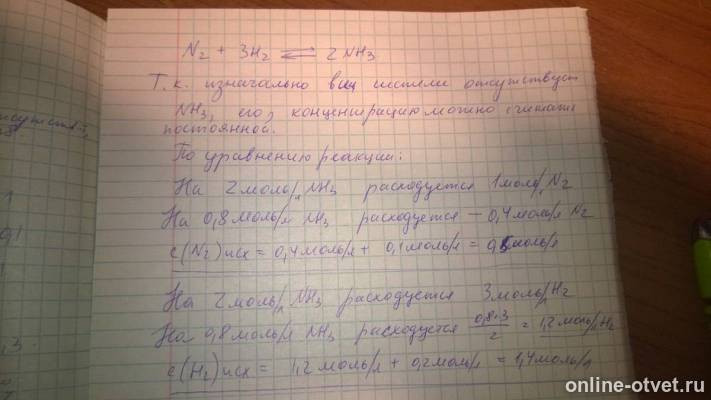 N2 + 3H2 ⇌ 2NH3
Т.к. изначально в системе отсутствует
NH3, его концентрацию можно считать
постоянной.
По уравнению реакции:
На 2 моль/л NH3 расходуется 1 моль/л N2
На 0,8 моль/л NH3 расходуется – 0,4 моль/л N2
c(N2)исх = 0,4 моль/л + 0,1 моль/л = 0,5 моль/л
На 2 моль/л NH3 расходуется 3 моль/л H2
На 0,8 моль/л NH3 расходуется 0,8·3/2 = 1,2 моль/л H2
c(H2)исх = 1,2 моль/л + 0,2 моль/л = 1,4 моль/л
online-otvet.ru